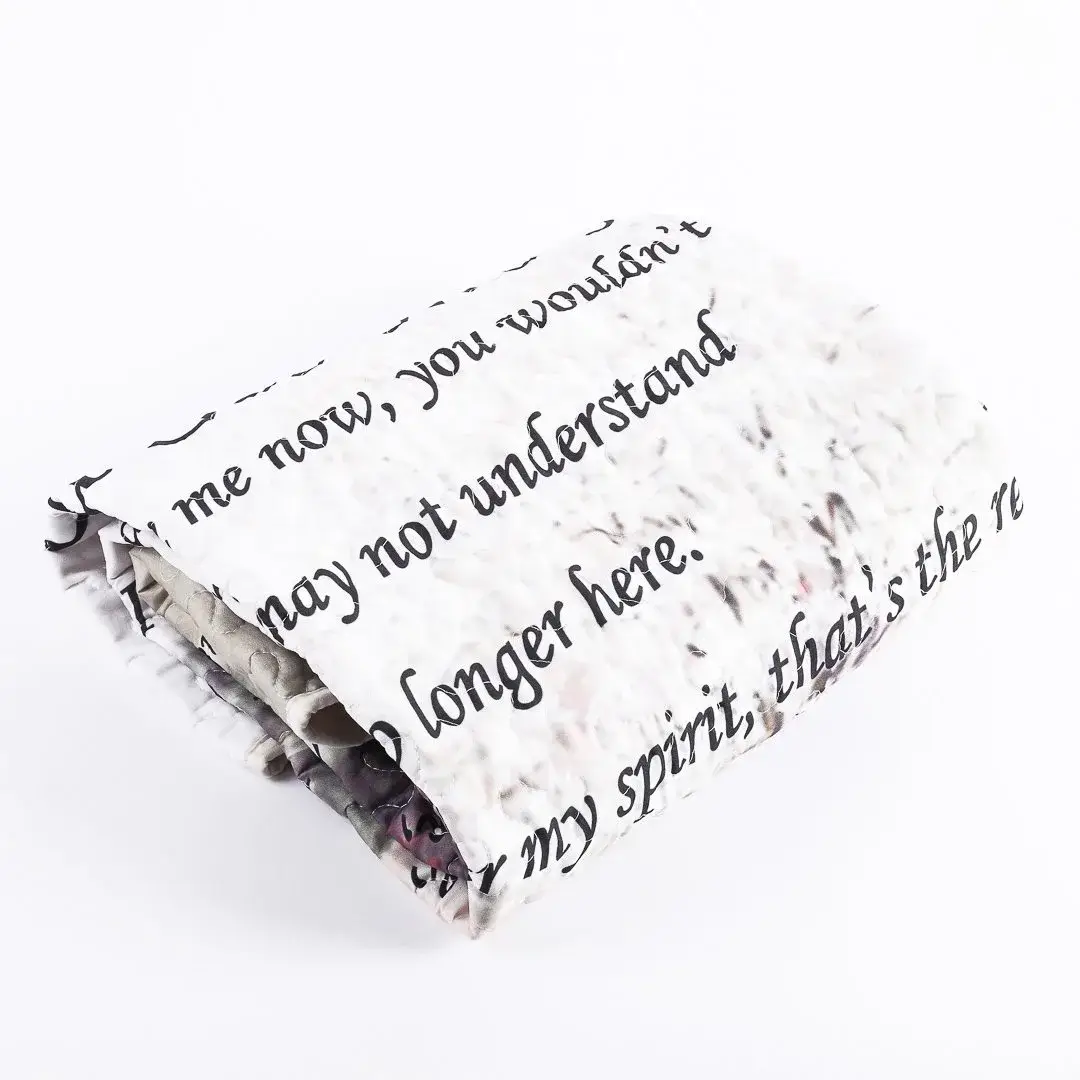 me now, you wouldn't
may not understand
longer here.
my spirit, that's the